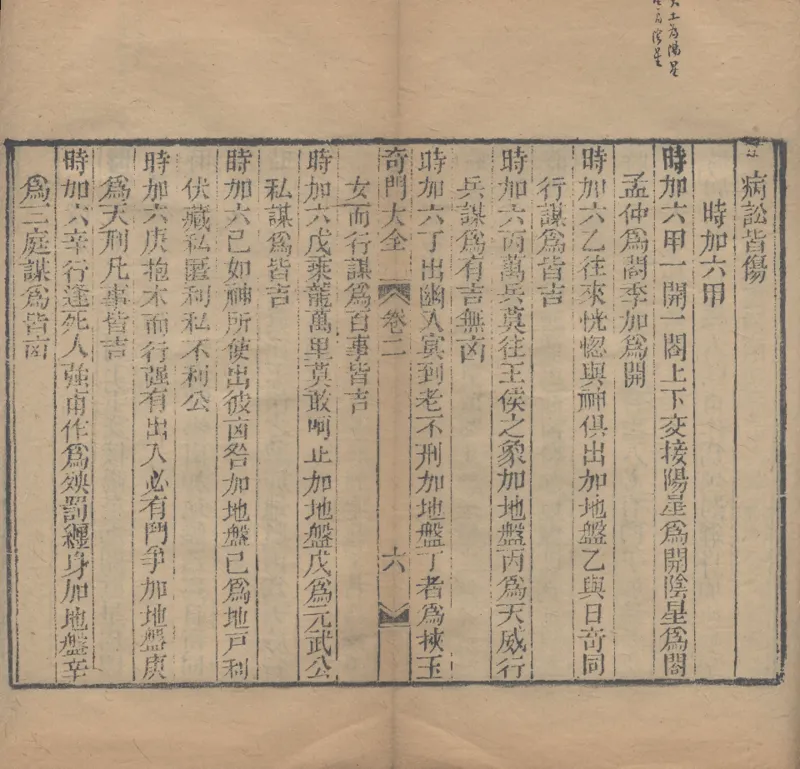 病訟皆傷
時加六甲
時加六甲一開一闔上下交接陽星為開陰星為闔
孟仲為闔季加為開
時加六乙往來恍惚與神俱出加地盤乙與日奇同
行謀為皆吉
時加六丙萬兵莫往王侯之象加地盤丙為天威行
兵謀為有吉無凶
時加六丁出幽入冥到老不刑加地盤丁者為挾玉
奇門大全 卷二 六
女而行謀為百事皆吉
時加六戊乘龍萬里莫敢呵止加地盤戊為元武公
私謀為皆吉
時加六己如神所使出彼凶咎加地盤己為地戸利
伏藏私匿利私不利公
時加六庚抱木而行强有出入必有鬥爭加地盤庚
為天刑凡事皆吉
時加六辛行逢死人強甫作為殃罰纏身加地盤辛
為三庭謀為皆凶
土為陽星